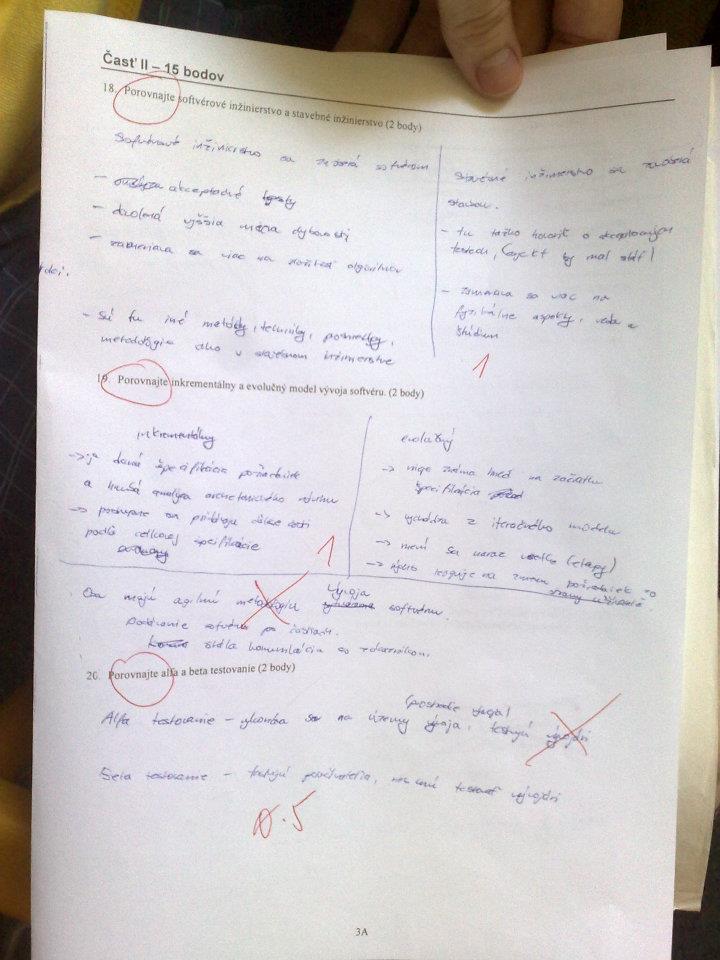 Časť II – 15 bodov
18. Porovnajte softvérové inžinierstvo a stavebné inžinierstvo (2 body)
Softvérové inžinierstvo sa zaoberá softvérom
- akceptačné testy
- dovolená vyššia miera chybovosti
- zameriava sa viac na zložitosť algoritmov
- sú tu iné metódy, techniky, postupy,
metodológie ako v stavebnom inžinierstve
Stavebné inžinierstvo sa zaoberá
stavbou.
- tu ťažko hovoriť o akceptačných
testoch, (objekt by mal stáť)
- zameriava sa viac na
fyzikálne aspekty, vedu a
štúdium
1
19. Porovnajte inkrementálny a evolučný model vývoja softvéru. (2 body)
inkrementálny
-> je daná špecifikácia požiadaviek
a hrubá analýza architektonického návrhu
-> postupne sa pridávajú ďalšie časti
podľa celkovej špecifikácie
1
evolučný
-> nie je známa hneď na začiatku
špecifikácia
-> vychádza z iteračného modelu
-> mení sa naraz všetko (etapy)
-> rýchlo reaguje na zmenu požiadaviek zo
strany
Oba majú agilnú metodológiu vývoja softvéru.
softvéru po častiach.
komunikácia so zákazníkom.
20. Porovnajte alfa a beta testovanie (2 body)
Alfa testovanie - na území vývoja, testujú vývojári
Beta testovanie - testujú používatelia, testovať vývojári
0.5
3A